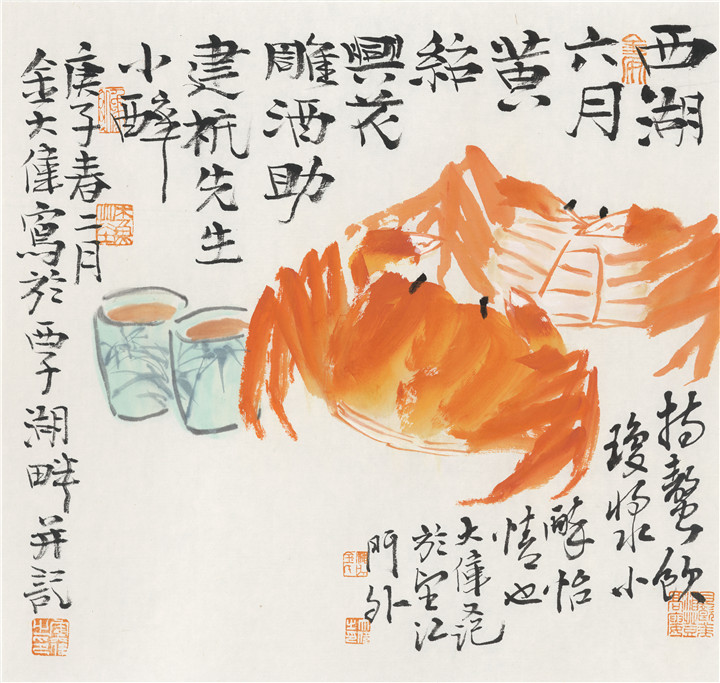 西湖
六月
黄
紹
興花
雕酒助
建杭先生
小醉
庚子春二月
金大偉寫於西子湖畔并記
持螯飲
瓊漿小
醉怡
情也
大偉又記
於望江
門外